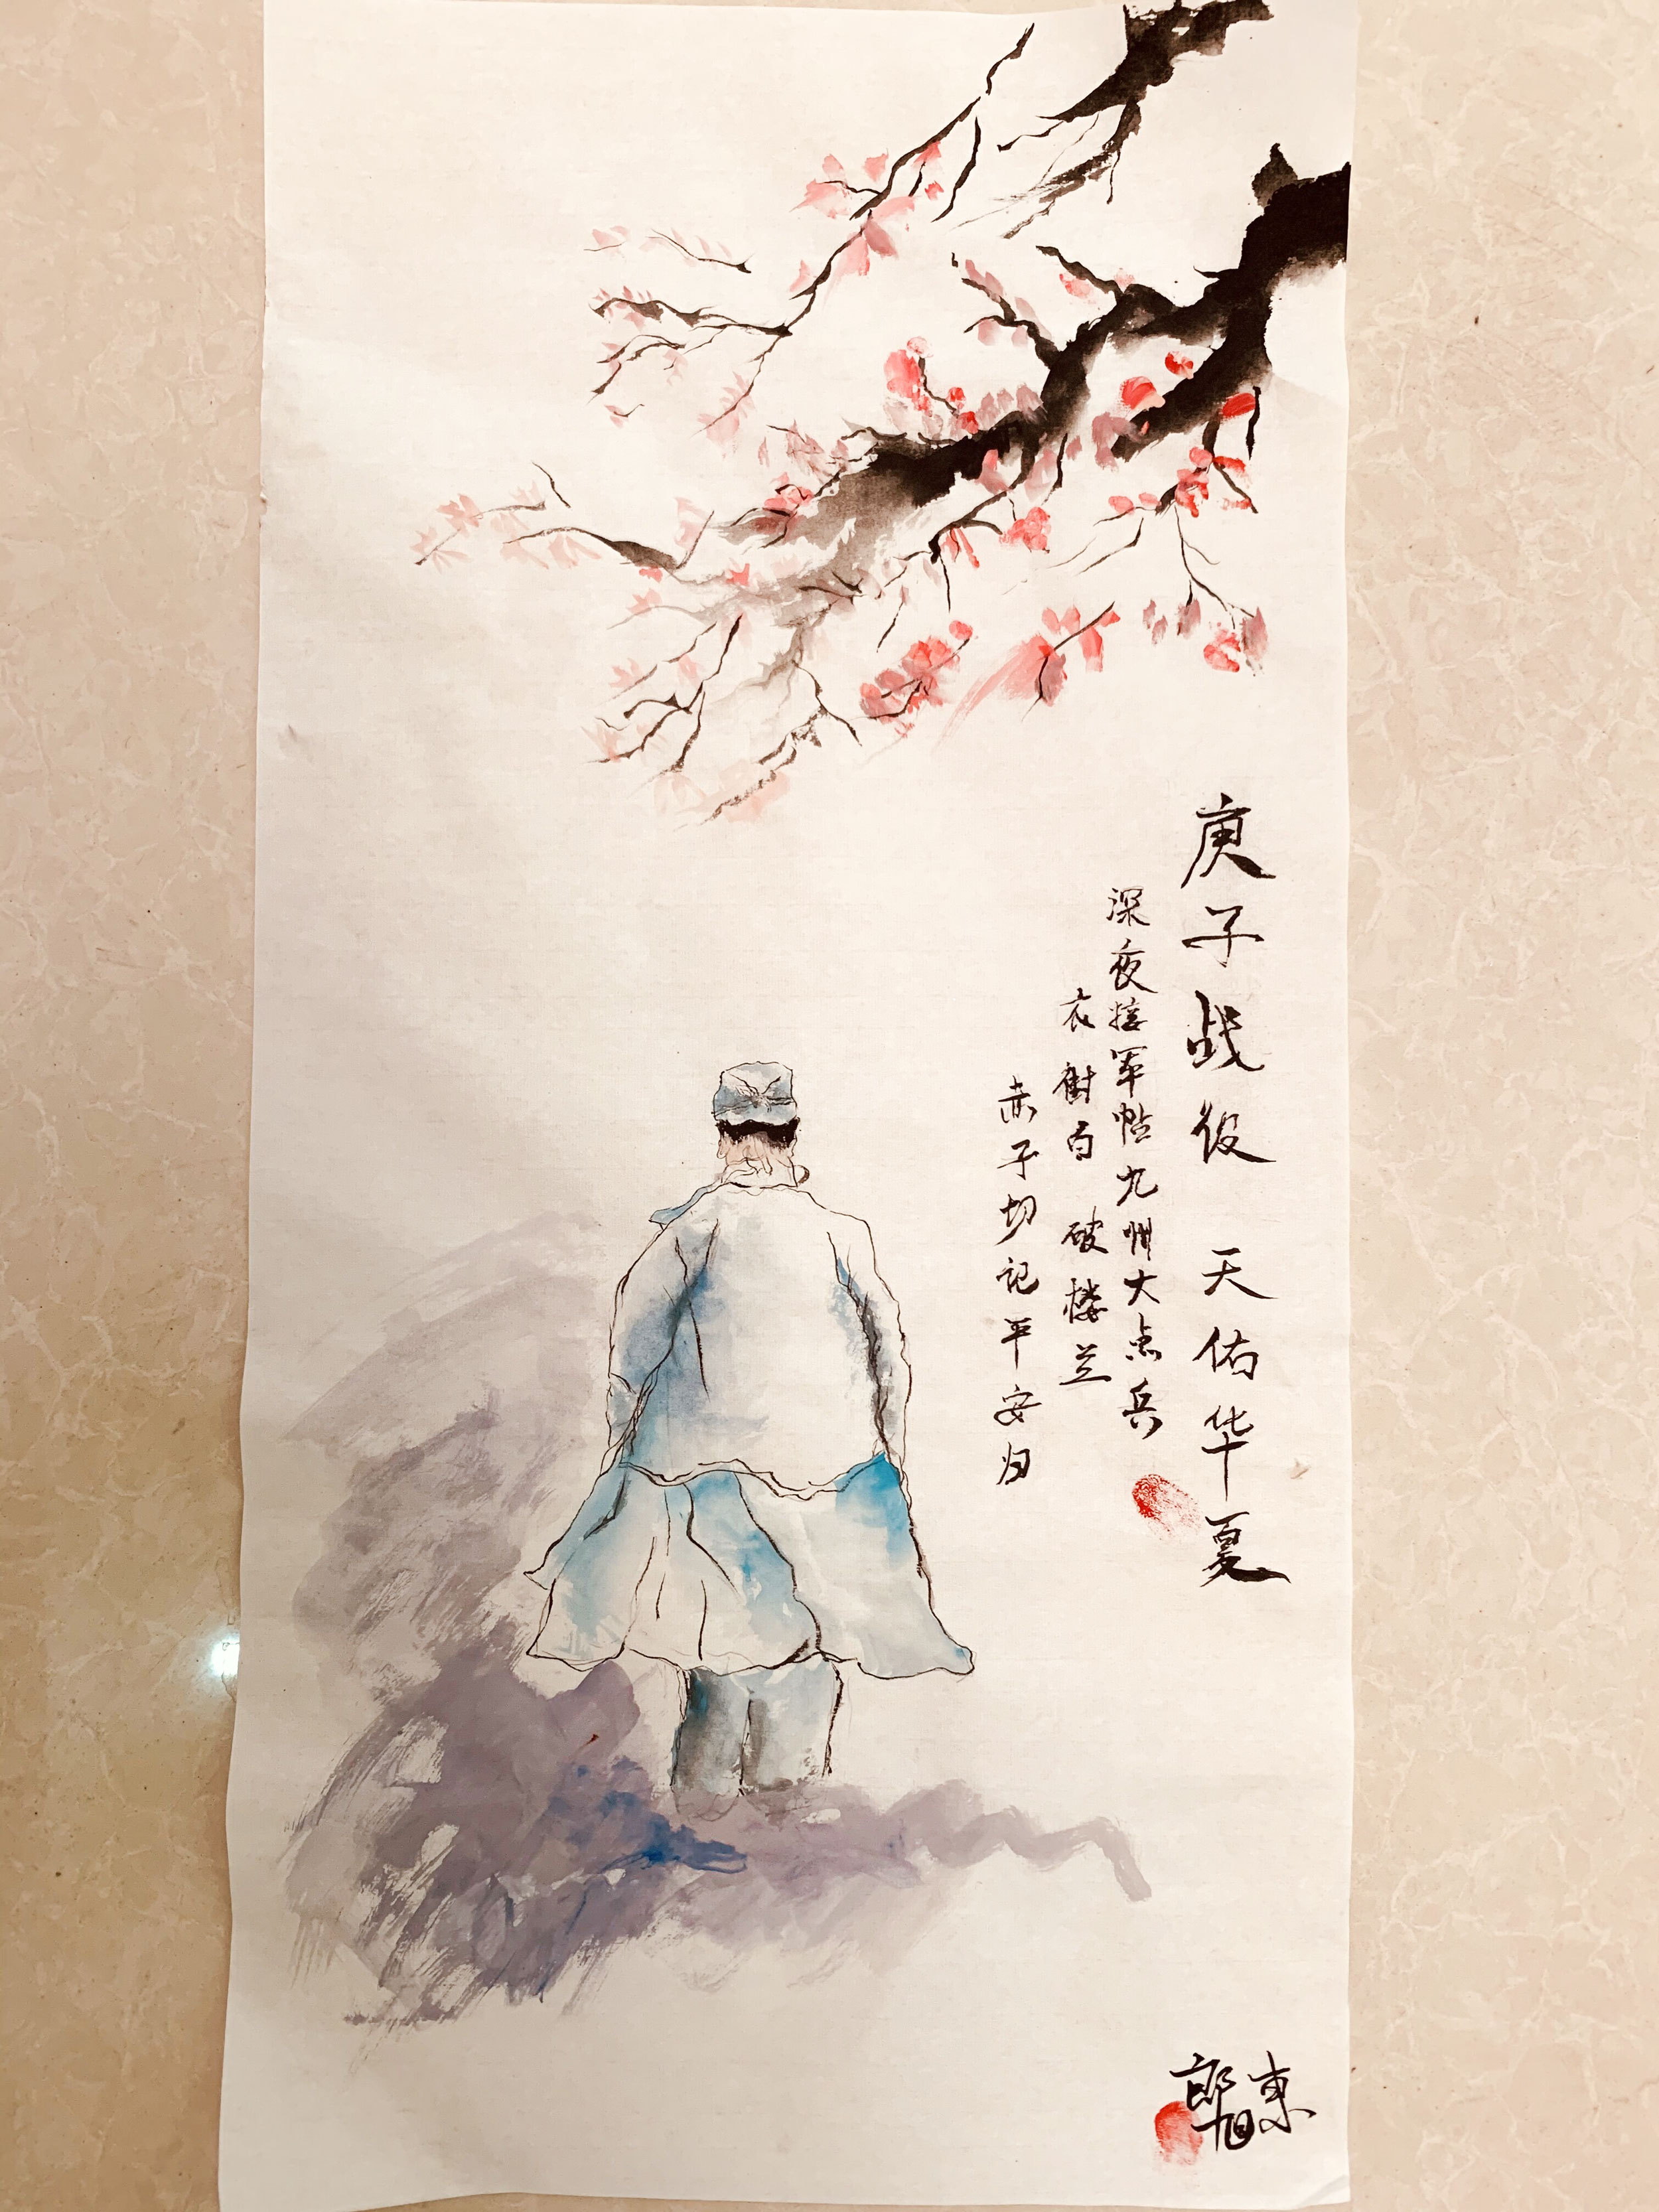 庚子战役 天佑华夏
深夜接军帖九州大点兵
衣白破楼兰
赤子切记平安归
東
郎旭